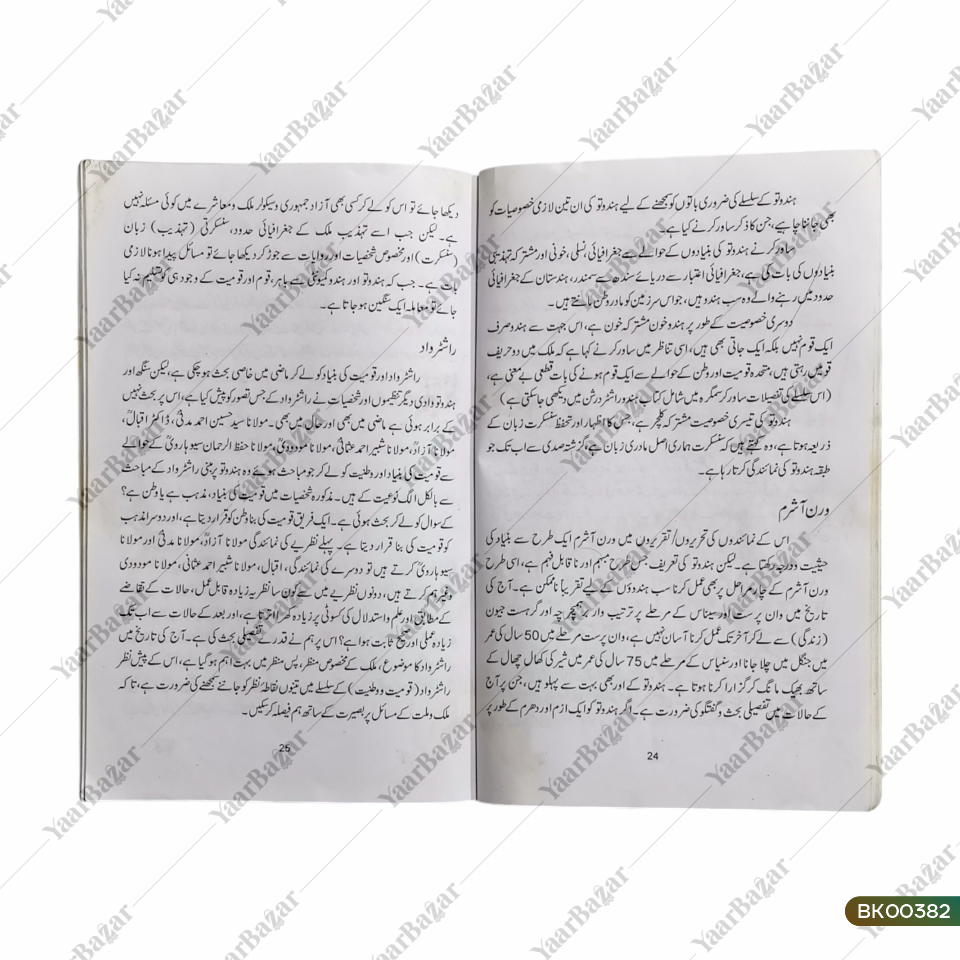 ہندوتو کے سلسلے کی ضروری باتوں کو سمجھنے کے لیے ہندوتو کی ان تین لازمی خصوصیات کو
بھی جاننا چاہیے، جن کا ذکر ساورکر نے کیا ہے۔
ساورکر نے ہندوتو کی بنیادوں کے حوالے سے جغرافیائی، نسلی، خونی اور مشترکہ تہذیبی
بنیادوں کی بات کی ہے، جغرافیائی اعتبار سے دریائے سندھ سے سمندر، ہندستان کے جغرافیائی
حدود میں رہنے والے وہ سب ہندو ہیں، جو اس سرزمین کو مادر وطن مانتے ہیں۔
دوسری خصوصیت کے طور پر ہندو خون مشترکہ خون ہے، اس جہت سے ہندو صرف
ایک قوم نہیں بلکہ ایک جاتی بھی ہیں، اسی تناظر میں ساورکر نے کہا ہے کہ ملک میں دو حریف
قومیں رہتی ہیں، متحدہ قومیت اور وطن کے حوالے سے ایک قوم ہونے کی بات قطعی بے معنی ہے،
(اس سلسلے کی تفصیلات ساورکر سمگرہ میں شامل کتاب ہندو راشٹر درشن میں دیکھی جاسکتی ہے)
ہندوتو کی تیسری خصوصیت مشترکہ کلچر ہے، جس کا اظہار اور تحفظ سنسکرت زبان کے
ذریعہ ہوتا ہے، وہ کہتے ہیں کہ سنسکرت ہماری اصل مادری زبان ہے، گزشتہ صدی سے اب تک جو
طبقہ ہندوتو کی نمائندگی کرتا رہا ہے۔
ورن آشرم
اس کے نمائندوں کی تحریروں/تقریروں میں ورن آشرم ایک طرح سے بنیاد کی
حیثیت ودرجہ رکھتا ہے۔ لیکن ہندوتو کی تعریف جس طرح مبہم اور ناقابل فہم ہے، اسی طرح
ورن آشرم کے چار مراحل پر بھی عمل کرنا سب ہندوؤں کے لیے تقریباً ناممکن ہے۔ آج کی
تاریخ میں وان پرست اور سنیاس کے مرحلے پر ترتیب وار برہمچریہ اور گرہست جیون
(زندگی) سے لے کر آخر تک عمل کرنا آسان نہیں ہے، وان پرست مرحلے میں 50 سال کی عمر
میں جنگل میں چلا جانا اور سنیاس کے مرحلے میں 75 سال کی عمر میں شیر کی کھال چھال کے
ساتھ بھیک مانگ کر گزارا کرنا ہوتا ہے۔ ہندوتو کے اور بھی بہت سے پہلو ہیں، جن پر آج
کے حالات میں تفصیلی بحث و گفتگو کی ضرورت ہے۔ اگر ہندوتو کو ایک ازم اور دھرم کے طور پر
24
دیکھا جائے تو اس کو لے کر کسی بھی آزاد جمہوری و سیکولر ملک و معاشرے میں کوئی مسئلہ نہیں
ہے۔ لیکن جب اسے تہذیب ملک کے جغرافیائی حدود، سنسکرتی (تہذیب) زبان
(سنسکرت) اور مخصوص شخصیات اور روایات سے جوڑ کر دیکھا جائے تو مسائل پیدا ہونا لازمی
بات ہے۔ جب کہ ہندوتو اور ہندو کیوٹی سے باہر، قوم اور قومیت کے وجود ہی کو تسلیم نہ کیا
جائے تو معاملہ ایک سنگین ہو جاتا ہے۔
راشٹرواد
راشٹرواد اور قومیت کی بنیاد کو لے کر ماضی میں خاصی بحث ہوچکی ہے، لیکن سنگھ اور
ہندوتو وادی دیگر تنظیموں اور شخصیات نے راشٹرواد کے جس تصور کو پیش کیا ہے، اس پر بحث نہیں
کے برابر ہوئی ہے ماضی میں بھی اور حال میں بھی۔ مولانا سید حسین احمد مدنیؒ، ڈاکٹر اقبالؒ،
مولانا آزادؒ، مولانا شبیر احمد عثمانیؒ، مولانا مودودیؒ، مولانا حفظ الرحمان سیوہارویؒ کے حوالے
سے قومیت کی بنیاد اور وطنیت کو لے کر جو مباحث ہوئے وہ ہندوتو پر مبنی راشٹرواد کے مباحث
سے بالکل الگ نوعیت کے ہیں۔ مذکورہ شخصیات میں قومیت کی بنیاد، مذہب ہے یا وطن ہے؟
کے سوال کو لے کر بحث ہوئی ہے۔ ایک فریق قومیت کی بنا وطن کو قرار دیتا ہے، اور دوسرا مذہب
کو قومیت کی بنا قرار دیتا ہے۔ پہلے نظریے کی نمائندگی مولانا آزادؒ، مولانا مدنیؒ اور مولانا
سیوہارویؒ کرتے ہیں تو دوسرے کی نمائندگی، اقبال، مولانا شبیر احمد عثمانی، مولانا مودودی
وغیرہم کرتے ہیں، دونوں نظریے میں سے کون سا نظریہ زیادہ قابل عمل، حالات کے تقاضے
کے مطابق اور علم و استدلال کی کسوٹی پر زیادہ کھرا اترتا ہے، اور بعد کے حالات سے اب تک
زیادہ عملی اور صحیح ثابت ہوا ہے؟ اس پر ہم نے قدرے تفصیلی بحث کی ہے۔ آج کی تاریخ میں
راشٹرواد کا موضوع، ملک کے مخصوص منظر، پس منظر میں بہت اہم ہوگیا ہے، اس کے پیش نظر
راشٹرواد (قومیت و وطنیت) کے سلسلے میں تینوں نقاطہ نظر کو جاننے سمجھنے کی ضرورت ہے، تاکہ
ملک و ملت کے مسائل پر بصیرت کے ساتھ ہم فیصلہ کر سکیں۔
25
YaarBazar
BK00382